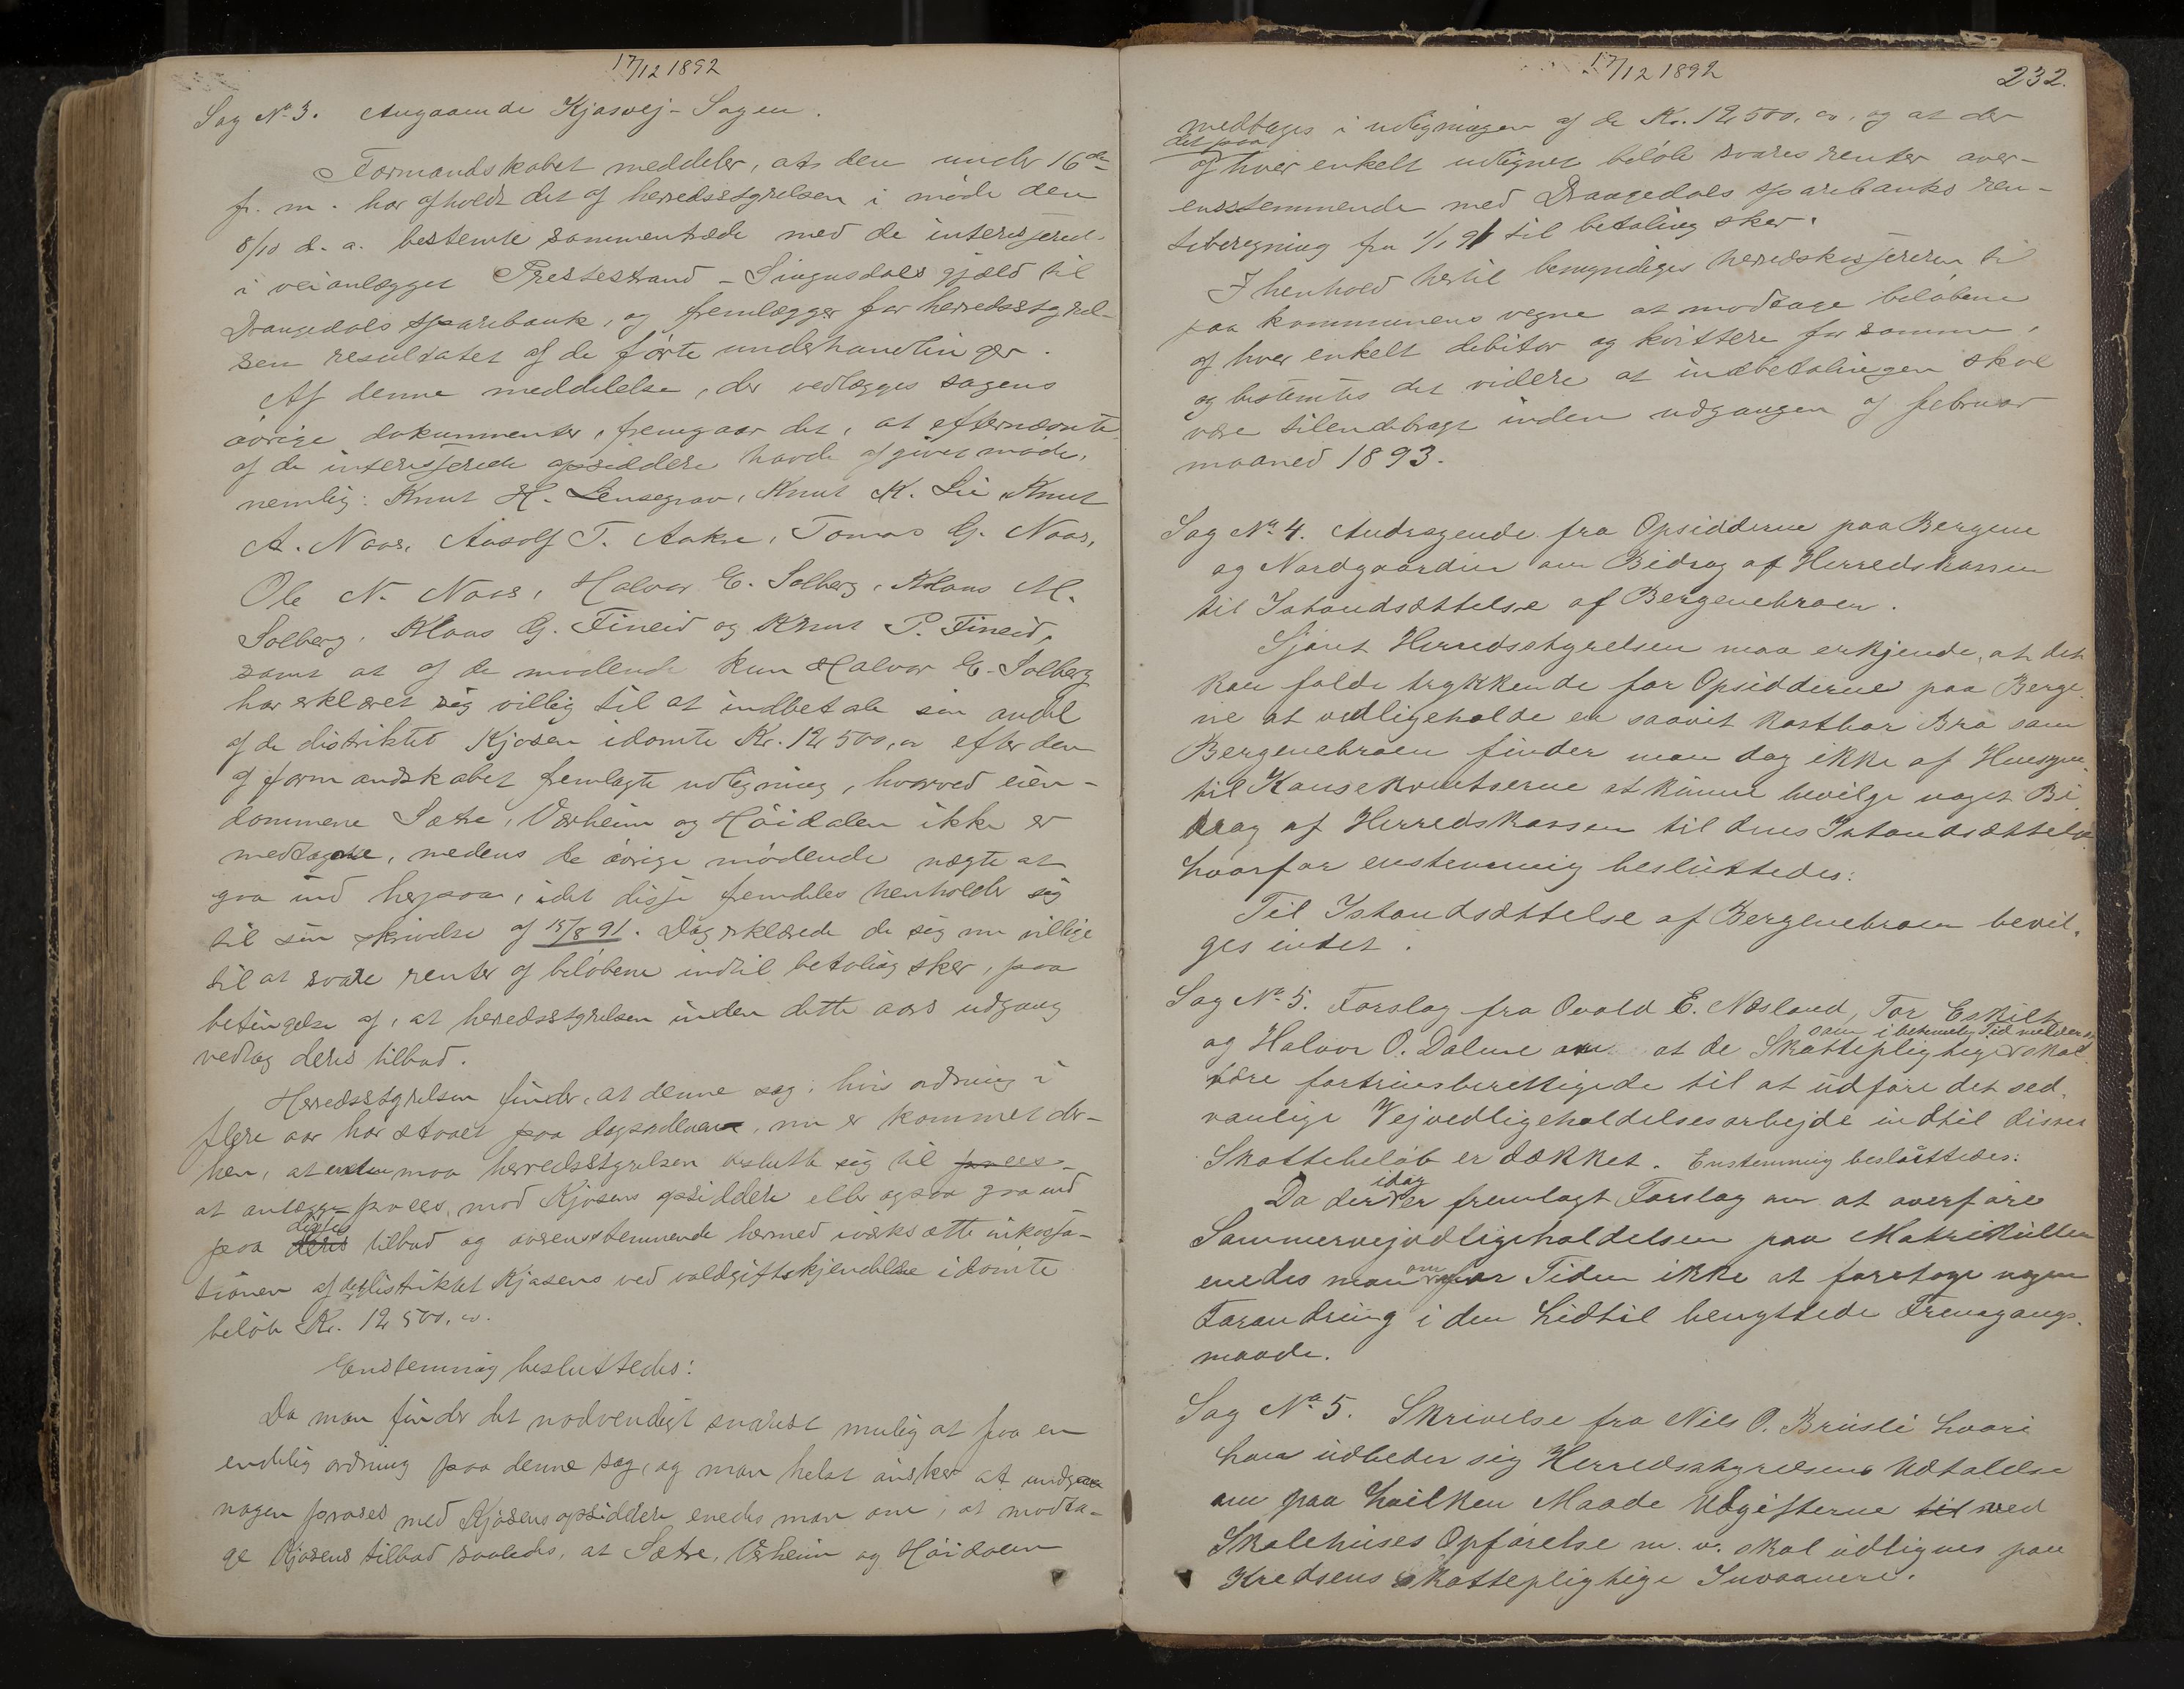 17/12 1892
Sag No 3. Angaaende Kjosvej-Sagen.
Formandskabet meddeler, at den under 16de
f. m. har afholdt det af herredsstyrelsen i møde den
8/10 d. a. bestemte sammentræde med de interesserede
i veianlægget Prestestrand - Singusdals gjæld til
Drangedals sparebank, og fremlægger for herredsstyrel-
sen resultatet af de førte underhandlinger.
Af denne meddelelse, der vedlægges sagens
øvrige dokumenter, fremgaar det, at efternævnte
af de interesserede opsiddere havde afgivet møde,
nemlig: Knut H. Lensegrav, Knut K. Lie Knut
A. Naas, Aasolf T. Aakre, Tomas G. Naas,
Ole N. Naas, Halvor E. Solberg, Klaus M.
Solberg, Klaas G. Fineid og Knut P. Fineid,
samt at af de mødende kun Halvor E. Solberg
har erklæret sig villig til at indbetale sin andel
af de distriktet Kjosen idømte Kr. 12 500,00 efter den
af formandskabet fremlagte udligning, hvorved eien-
dommene Sætre, Værheim og Høidalen ikke er
medtagne, medens de øvrige mødende nægte at
gaa ind herpaa, idet disse fremdeles henholder sig
til sin skrivelse af 15/8 91. Dog erklærede de sig nu villige
til at svare renter af beløbene indtil betaling sker, paa
betingelse af, at herredsstyrelsen inden dette aars udgang
vedtog deres tilbud.
Herredsstyrelsen finder, at denne sag, hvis ordning i
flere aar har staaet paa dagsordenen, nu er kommet der-
hen, at enten maa herredsstyrelsen beslutte sig til proces-
at anlægge proces mod Kjosens opsiddere eller ogsaa gaa ind
disses
paa deres tilbud og overensstemmende hermed iværksætte inkassa-
tionen af det distriktet Kjosens ved voldgiftskjendelse idømte
beløb Kr. 12 500,00.
Enstemmig besluttedes:
Da man finder det nødvendigt snarest mulig at faa en
endelig ordning paa denne sag, og man helst ønsker at undgaa
nogen proces med Kjosens opsiddere enedes man om, at modta-
ge Kjosens tilbud saaledes, at Sætre, Værheim og Høidalen
17/12 1892
232.
medtages i udligningen af de Kr. 12 500,00, og at der
det paa
af hver enkelt udlignet beløb svares renter over-
ensstemmende med Drangedals sparebanks ren-
teberegning fra 1/1 91 til betaling sker.
I henhold hertil bemyndiges herredskassereren til
paa kommunens vegne at modtage beløbene
af hver enkelt debitor og kvittere for samme,
og bestemtes det videre at indbetalingen skal
være tilendebragt inden udgangen af februar
maaned 1893.
Sag No 4. Andragende fra Opsidderne paa Bergene
og Nordgaarden om Bidrag af Herredskassen
til Istandsættelse af Bergenebroen.
Sjønt Herredsstyrelsen maa erkjende, at det
kan falde trykkende for Opsidderne paa Berge-
ne at vedligeholde en saavit kostbar Bro som
Bergenebroen finder man dog ikke af Hensyn
til Konsekventserne at kunne bevilge noget Bi
drag af Herredskassen til dens Istandsættelse
hvorfor enstemmig besluttedes:
Til Istandsættelse af Bergenebroen bevil-
ges intet.
Sag No 5. Forslag fra Ovald E. Næsland, Tor Eskilt
som i betimelig Tid melder sig
og Halvor O. Dalene om at de Skattepligtige skal
være fortrinsberettigede til at udføre det sed-
vanlige Vejvedligeholdelsesarbejde indtil disses
Skattebeløb er dækket. Enstemmig besluttedes:
idag
Da der er fremlagt Forslag om at overføre
Sommervejvedligeholdelsen paa Matrikullen
om
enedes man for Tiden ikke at foretage nogen
Forandring i den hidtil benyttede Fremgangs-
maade.
Sag No 5. Skrivelse fra Nils O. Brusli hvori
han udbeder sig Herredsstyrelsens Udtalelse
om paa hvilken Maade Udgifterne til ved
Skolehuses Opførelse m. v. skal udlignes paa
Kredsens skattepligtige Invaanere.